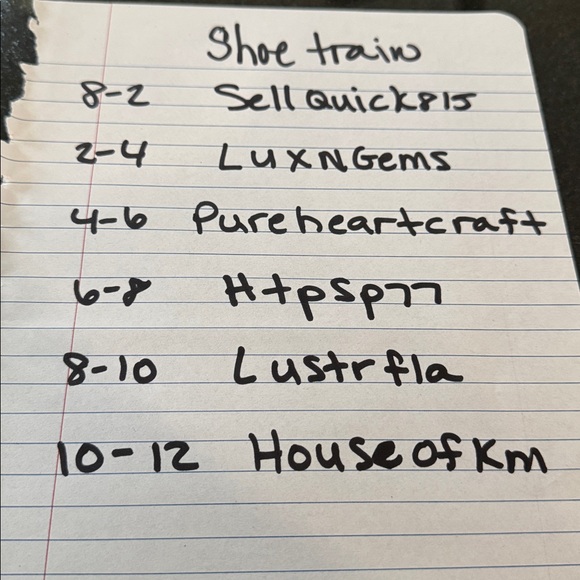 Shoe train
8-2 SellQuick815
2-4 LUXNGems
4-6 Pureheartcraft
6-8 Htpsp77
8-10 Lustrfla
10-12 HouseofKm